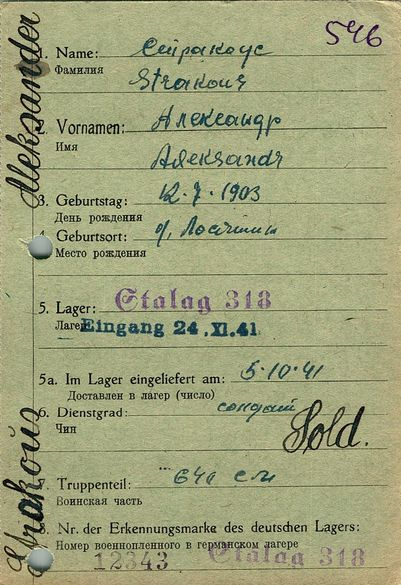 546
1. Name: Стракоус
Фамилия
Strakous
2. Vornamen: Александр
Имя
Aleksandr
3. Geburtstag: 12.7.1903
День рождения
4. Geburtsort: д.
Место рождения
5. Lager: Stalag 318
Лагер Eingang 24.XI.41
5a. Im Lager eingeliefert am: 5.10.41
Доставлен в лагер (число)
6. Dienstgrad: солдат
Чин
Sold.
7. Truppenteil: 640 с.п
Воинская часть
8. Nr. der Erkennungsmarke des deutschen Lagers:
Номер военнопленного в германском лагере
12343 Stalag 318
Strakous Aleksander